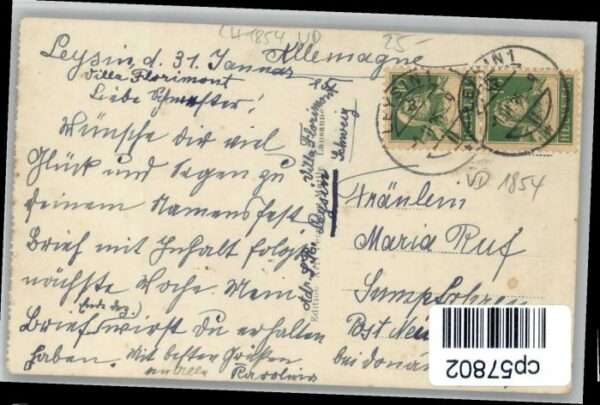 CH 1854 VD
25-
Leysin, d. 31. Januar
Allemagne
Villa Florimont
Liebe Schwester!
Wünsche dir viel
Glück und Segen zu
deinem Namensfest
Brief mit Inhalt folgt
nächste Woche. Mein
Brief wirst Du erhalten
haben. Mit besten Grüßen
an alle Karolina
Villa Florimont
Leysin
Schweiz
LEYSIN 1
LEYSIN 1
HELVETIA
VD 1854
Fräulein
Maria Ruf
Sumpfohren
Post
bei
cp57802